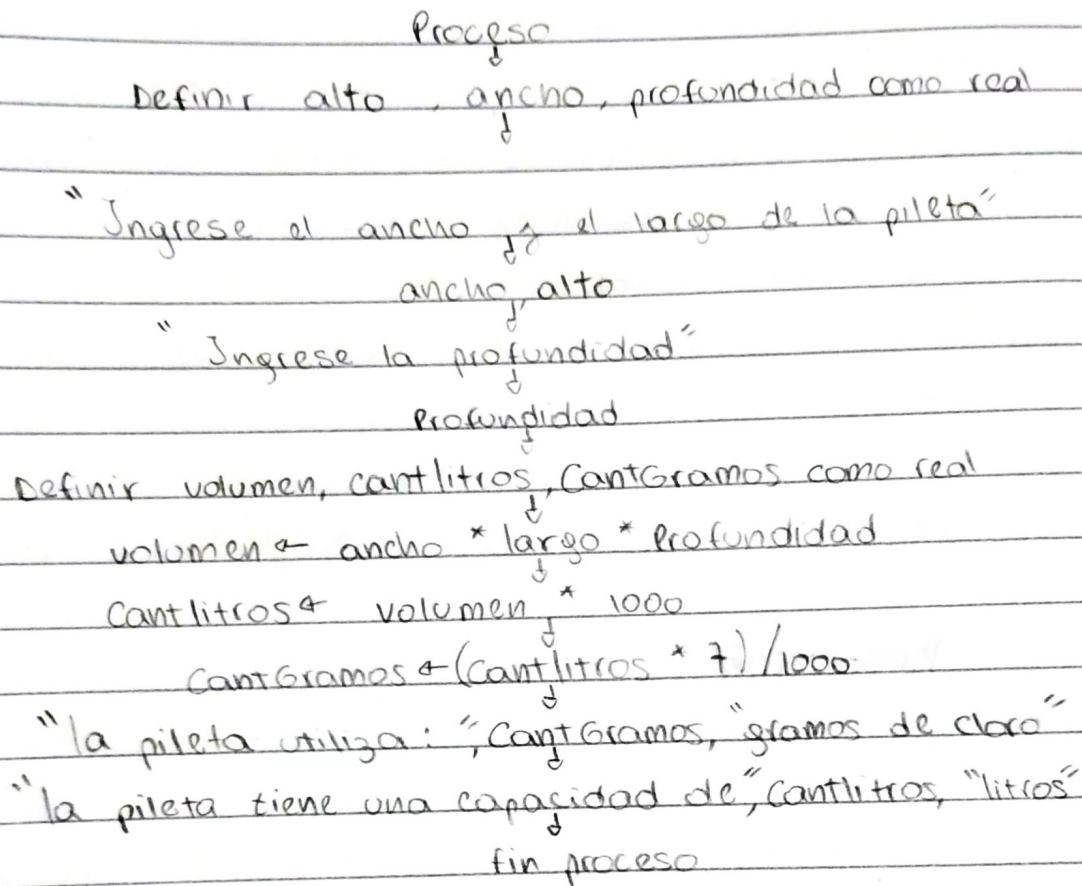 Proceso
Definir alto, ancho, profundidad como real
"Ingrese el ancho y el largo de la pileta"
ancho, alto
"Ingrese la profundidad"
Profundidad
Definir volumen, cantlitros, CantGramos como real
volumen ← ancho * largo * Profundidad
Cantlitros ← volumen * 1000
CantGramos ← (Cantlitros * 7) / 1000
"la pileta utiliza: ", CantGramos, "gramos de cloro"
"la pileta tiene una capacidad de", Cantlitros, "litros"
fin proceso